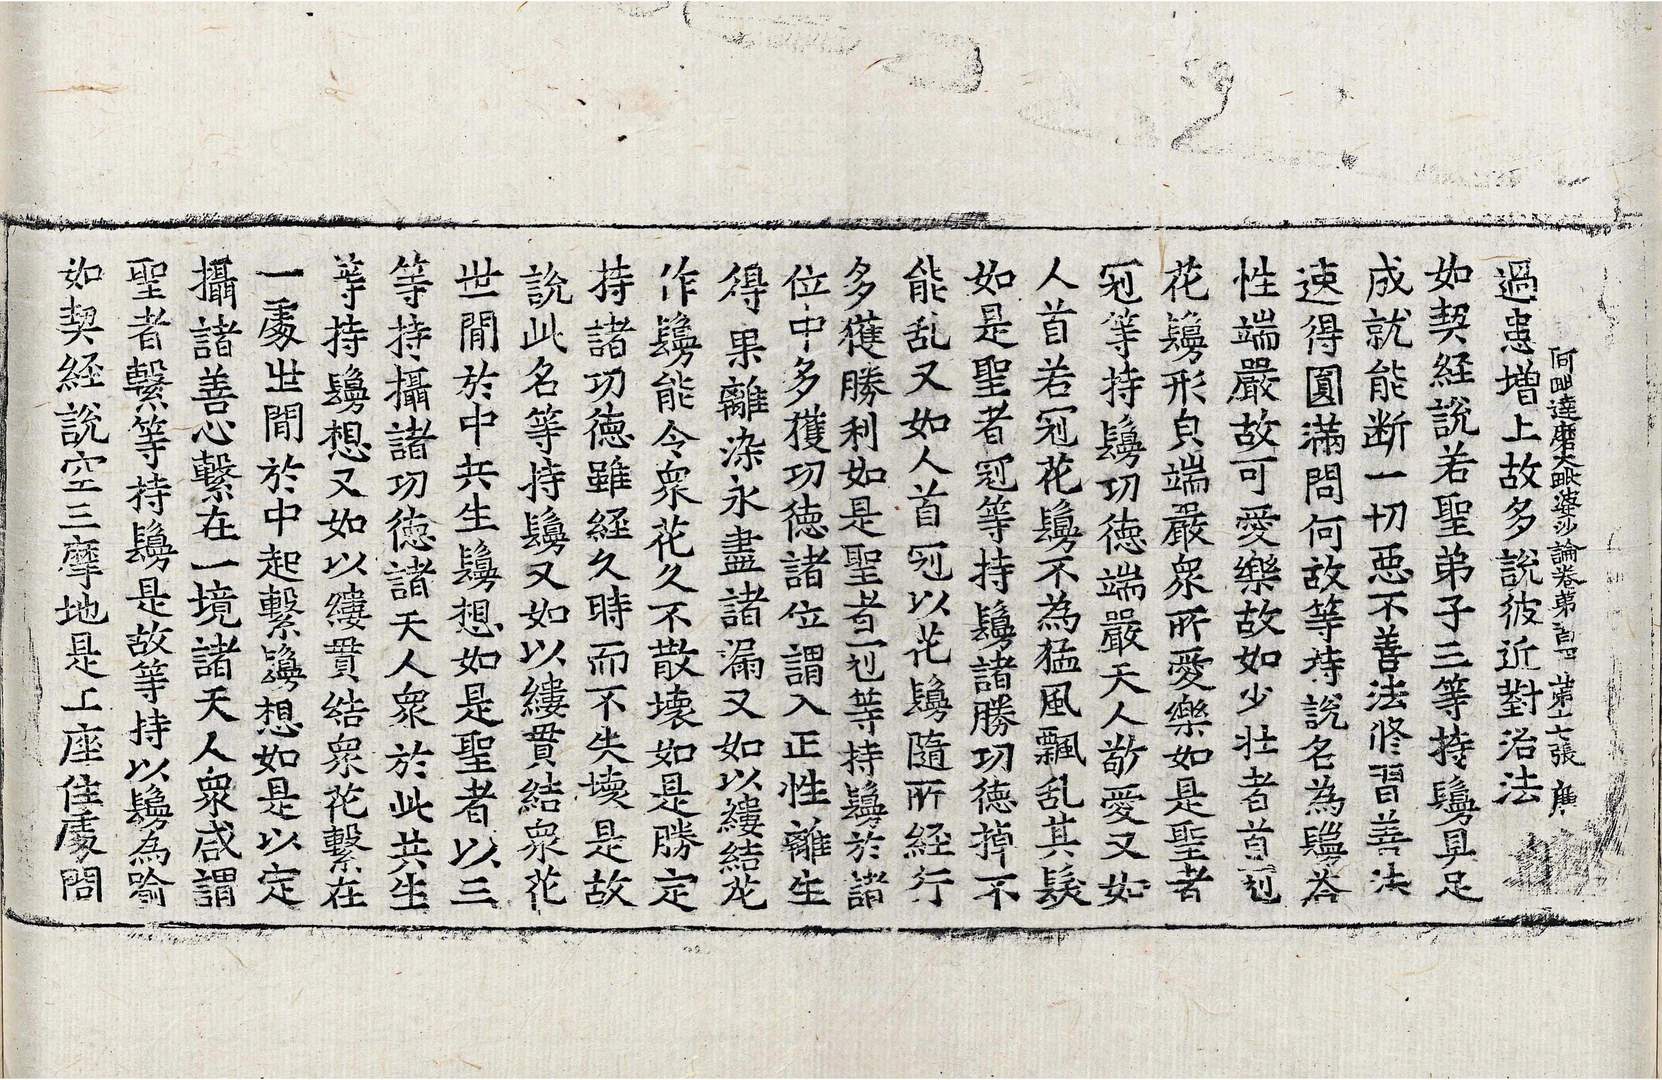 阿毗達磨大毗婆沙論卷第百四 第十七張 廣
過患增上故多說彼近對治法
如契経說若聖弟子三等持鬘具足
成就能断一切惡不善法修習善法
速得圓滿問何故等持說名為鬘荅
性端嚴故可愛樂故如少壯者首冠
花鬘形皃端嚴衆所愛樂如是聖者
冠等持鬘功德端嚴天人敬愛又如
人首若冠花鬘不為猛風飄乱其髮
如是聖者冠等持鬘諸勝功德掉不
能乱又如人首冠以花鬘隨所経行
多獲勝利如是聖者冠等持鬘於諸
位中多獲功德諸位謂入正性離生
得果離染永盡諸漏又如以縷結花
作鬘能令衆花久不散壞如是勝定
持諸功德雖経久時而不失壞是故
說此名等持鬘又如以縷貫結衆花
世間於中共生鬘想如是聖者以三
等持攝諸功德諸天人衆於此共生
等持鬘想又如以縷貫結衆花繫在
一處世間於中起繫鬘想如是以定
攝諸善心繫在一境諸天人衆咸謂
聖者繫等持鬘是故等持以鬘為喻
如契経說空三摩地是上座住處問